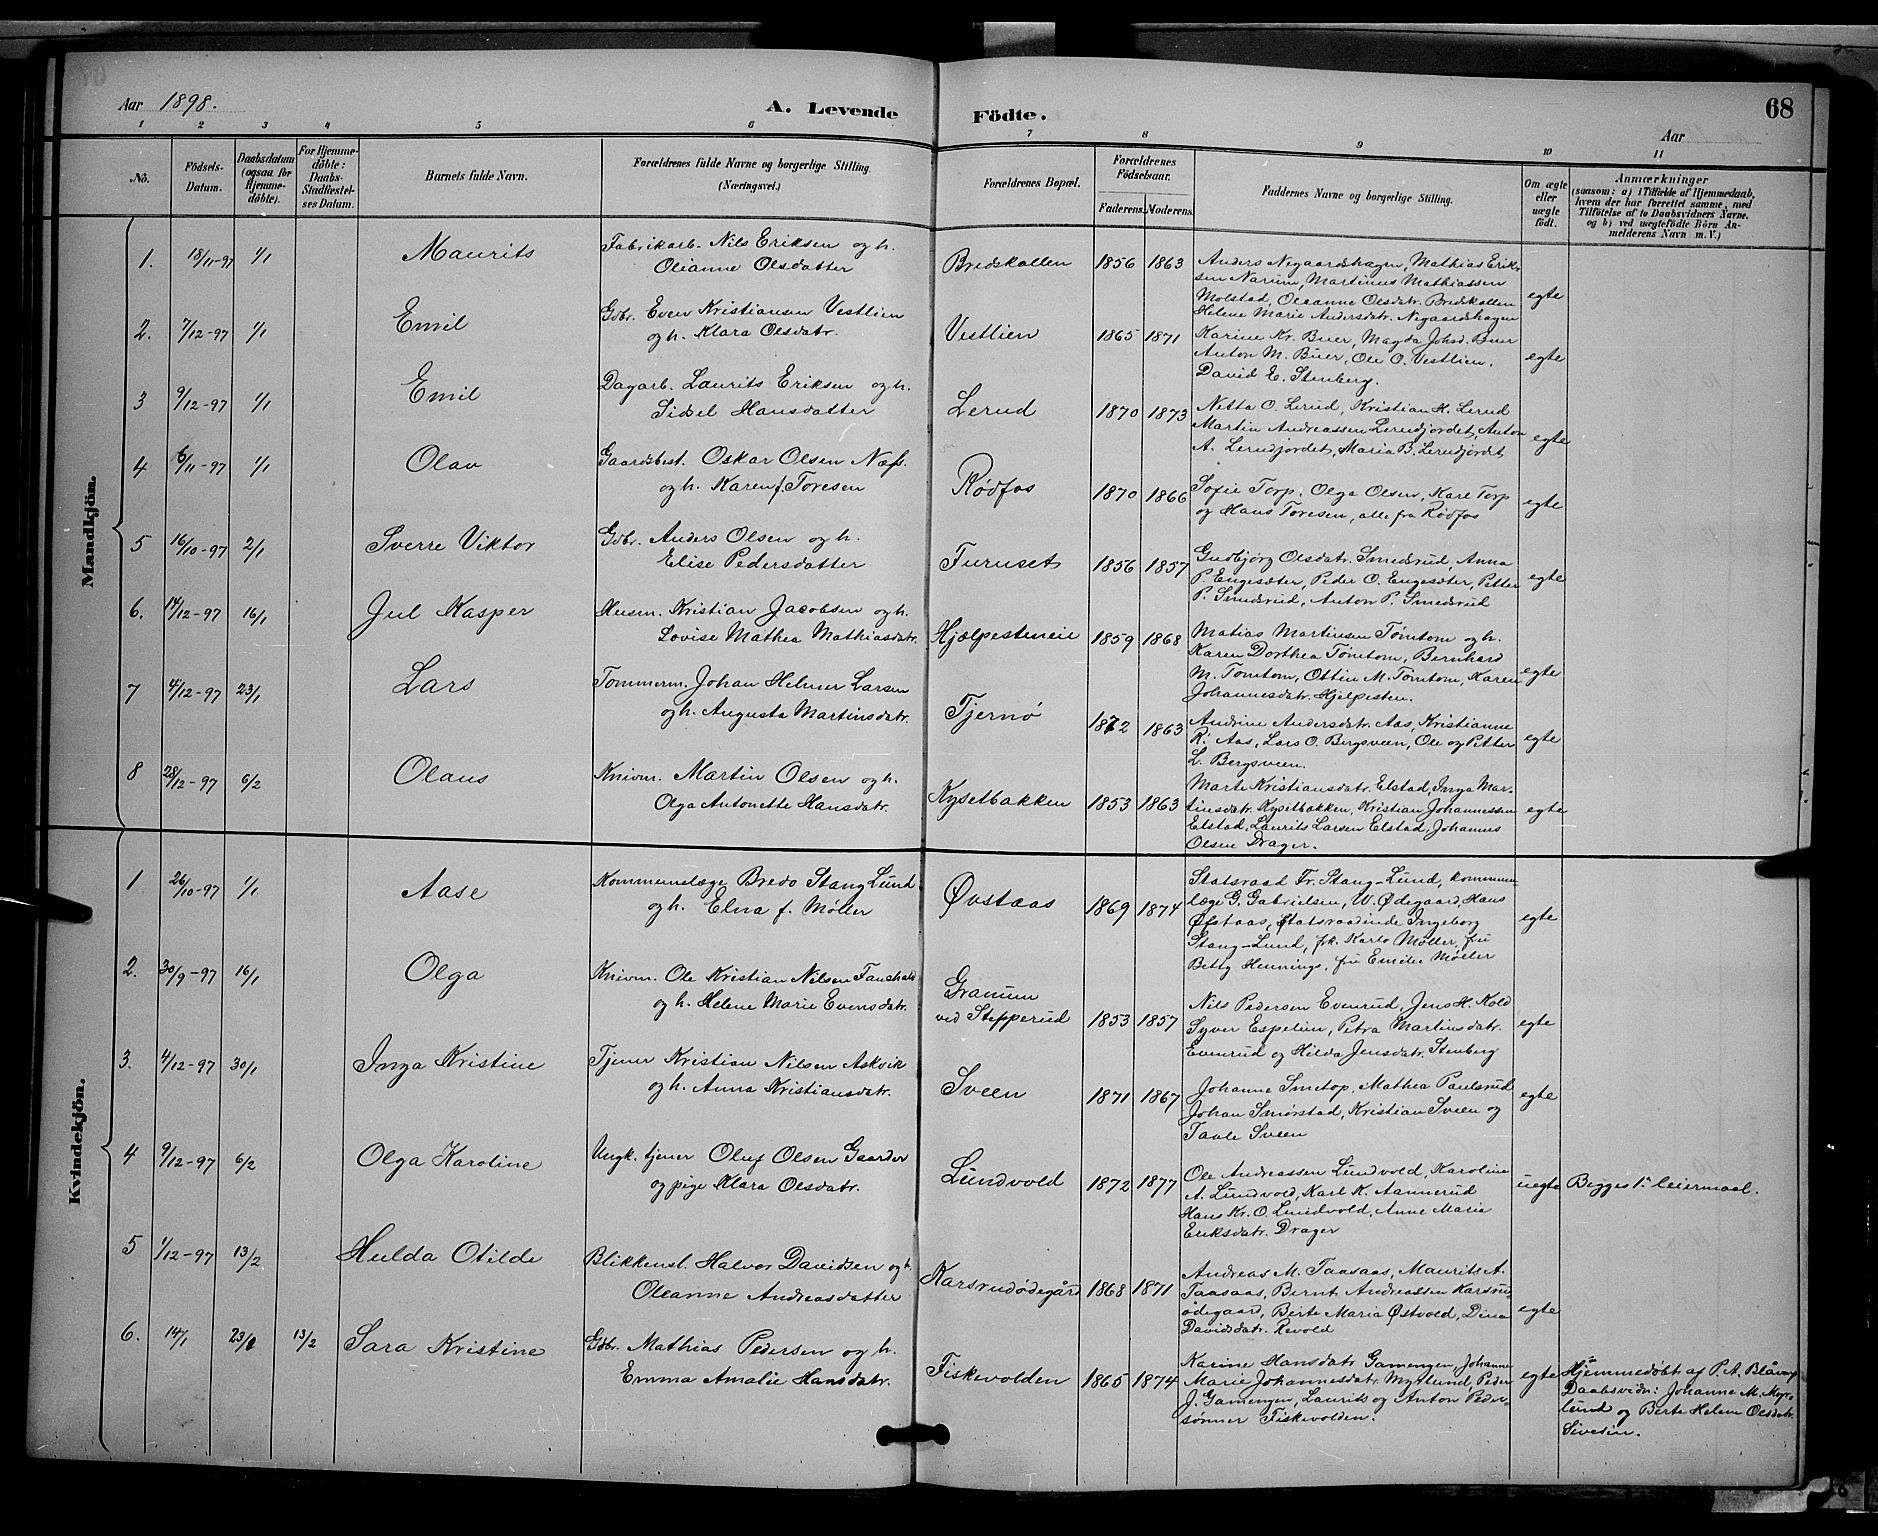 Aar 1898.
A. Levende
Födte.
68
Aar
1 2 3 4 5 6 7 8 9 10 11
No.
Födsels-
Datum.
Daabsdatum
(ogsaa for
Hjemme-
döbte).
For Hjemme-
döbte:
Daabs-
Stadfæstel-
ses Datum.
Barnets fulde Navn.
Forældrenes fulde Navne og borgerlige Stilling.
(Næringsvei.)
Forældrenes Bopæl.
Forældrenes
Födselsaar.
Faderens. Moderens.
Faddernes Navne og borgerlige Stilling.
Om ægte
eller
uægte
födt.
Anmærkninger
(saasom: a) i Tilfælde af Hjemmedaab,
hvem der har forrettet samme, med
Tilföielse af to Daabsvidners Navne.
og b) ved uægtefödte Börn An-
melderens Navn m. V.)
Mandkjön.
1. 18/11-97 1/1 Maurits
Fabrikarb. Nils Eriksen og h.
Olianne Olsdatter
Bredskallen 1856 1863
Anders Negaardshagen, Mathias Erik-
sen Narum, Martinus Mathiassen
Molstad, Oleanne Olsdatr. Bredskallen
Helene Marie Andersdatr. Negaardshagen
egte
2. 7/12-97 1/1 Emil
Gdbr. Even Kristiansen Vestlien
og h. Klara Olsdatr.
Vestlien 1865 1871
Karine Kr. Buer, Magda Johsd. Buer
Anton M. Buer, Ole O. Vestlien.
David E. Stenberg.
egte
3 9/12-97 1/1 Emil
Dagarb. Laurits Eriksen og h.
Sidsel Hansdatter
Lerud 1870 1873
Netta O. Lerud, Kristian H. Lerud
Martin Andreassen Lerudjordet, Anton
A. Lerudjordet, Maria B. Lerudjordet
egte
4 6/11-97 1/1 Olav
Gaardsbest. Oskar Olsen Næss.
og h. Karen f. Toresen
Rødfos 1870 1866
Sofie Torp, Olga Olsen, Kare Torp
og Hans Toresen, alle fra Rødfos
egte
5 16/10-97 2/1 Sverre Viktor
Gdbr. Anders Olsen og h.
Elise Pedersdatter
Furuset 1856 1857
Gudbjørg Olsdatr. Smedsrud, Anna
P. Engesæter, Peder O. Engesæter, Petter
P. Smedsrud, Anton P. Smedsrud
egte
6. 14/12-97 16/1 Jul Kasper
Husm. Kristian Jacobsen og h.
Lovise Mathea Mathiasdatr.
Hjælpesteneie 1859 1868
Matias Martinsen Tømtom og h.
Karen Dorthea Tømtom, Bernhard
M. Tomtom, Ottin M. Tomtom, Karen
Johannesdatr. Hjelpesten.
egte
7 4/12-97 23/1 Lars
Tommerm. Johan Helmer Larsen
og h. Augusta Martinsdatr.
Tjernø 1872 1863
Andrine Andersdatr. Aas, Kristianne
R. Aas, Lars O. Bergsveen, Ole og Petter
L. Bergsveen.
egte
8 28/12-97 6/2 Olaus
Knivm. Martin Olsen og h.
Olga Antonette Hansdatr.
Kysetbakken 1853 1863
Marte Kristiansdatr. Elstad, Inga Mar-
tinsdatr. Kysetbakken, Kristian Johannessen
Elstad, Laurits Larsen Elstad, Johannes
Olsen Drager.
egte
Kvindekjön.
1 26/10-97 1/1 Aase
Kommunelæge Bredo Stang Lund
og h. Elna f. Møller
Øvstaas 1869 1874
Statsraad Fr. Stang-Lund, kommune-
læge G. Gabrielsen, W. Ødegaard, Hans
Øfstaas, Statsraadinde Ingeborg
Stang-Lund, frk. Karlo Møller, fru
Betty Hennings, fru Emilie Møller
egte
2. 30/9-97 16/1 Olga
Knivm. Ole Kristian Nilsen Fauchald
og h. Helene Marie Evensdatr.
Granum
ved Stepperud 1853 1857
Nils Pedersen Evenrud, Jens H. Kold
Syver Espelien, Petra Martinsdatr.
Evenrud og Hilda Jensdatr. Stenberg
egte
3. 4/12-97 30/1 Inga Kristine
Tjener Kristian Nilsen Askvik
og h. Anna Kristiansdatr.
Sveen 1871 1867
Johanne Smetop, Mathea Paulsrud
Johan Smørstad, Kristian Sveen og
Taale Sveen
egte
4 9/12-97 6/2 Olga Karoline
Ungk. tjener Oluf Olsen Gaarder
og pige Klara Olsdatr.
Lundvold 1872 1877
Ole Andreassen Lundvold, Karoline
A. Lundvold, Karl K. Aannerud
Hans Kr. O. Lundvold, Anne Maria
Eriksdatr. Drager
uegte Begges 1ste leiermaal.
5 1/12-97 13/2 Hulda Otilde
Blikkensl. Halvor Davidsen og h.
Oleanne Andreasdatter
Karsrudødegård 1868 1871
Andreas M. Taasaas, Maurits A.
Taasaas, Bernt Andreassen Karsrud
ødegaard, Berte Maria Østvold, Dina
Davidsdatr. Revold
egte
6. 14/1 23/1 13/2 Sara Kristine
Gdbr. Mathias Pedersen og h.
Emma Amalie Hansdatr.
Fiskevolden 1865 1874
Karine Hansdatr Gamengen, Johanne
Marie Johannesdatr. Myrlund, Peder
J. Gamengen, Laurits og Anton Peder-
sønner Fiskevolden.
egte Hjemmedøbt af P. A. Blåvarp
Daabsvidn: Johanne M. Myr-
lund og Berte Helene Olsdatr.
Sivesin.